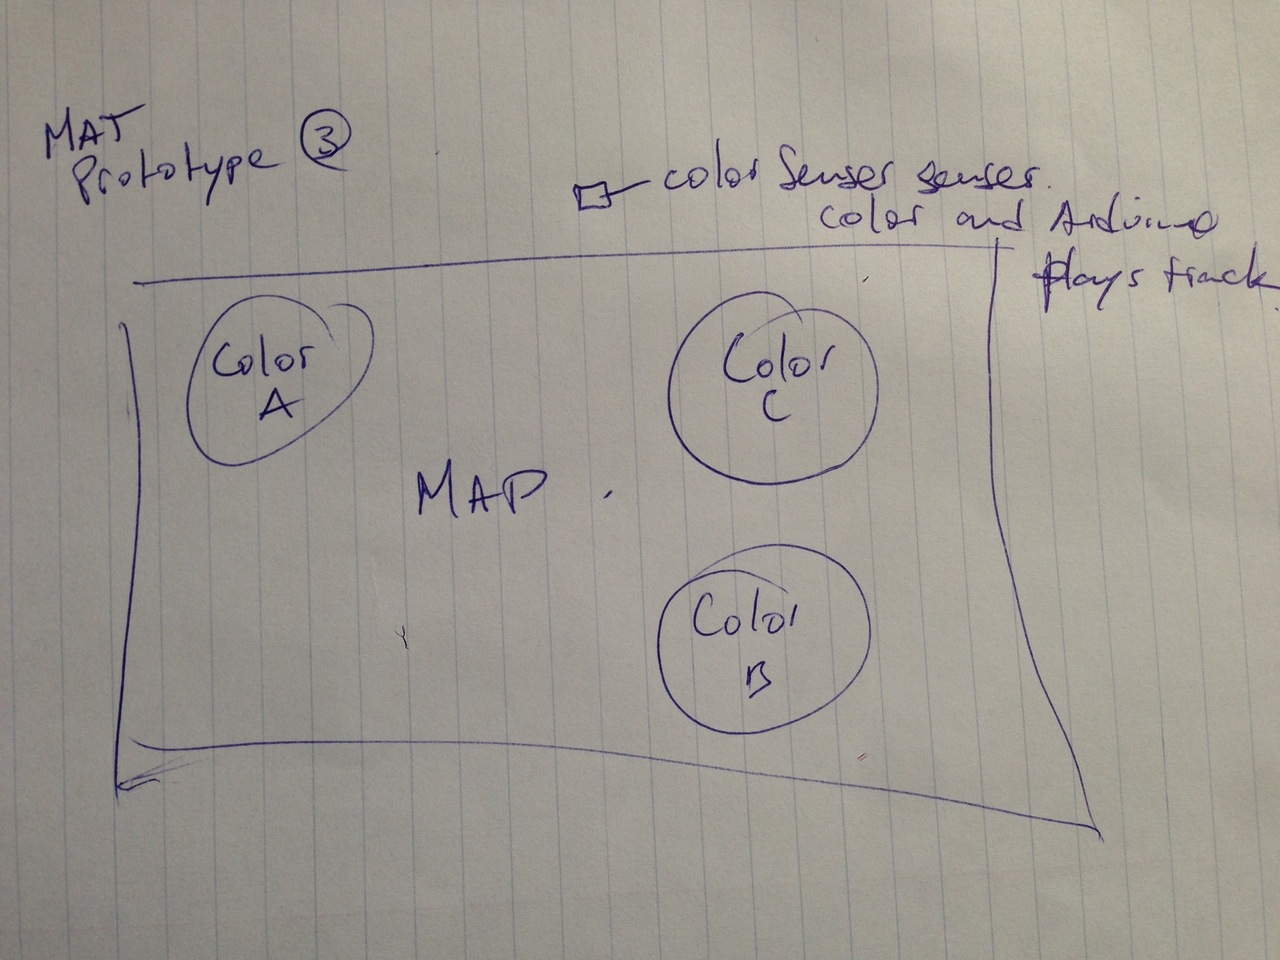 MAT
Prototype 3
color Senser senser
color and Arduino
plays track
Color
A
Color
C
MAP
Color
B